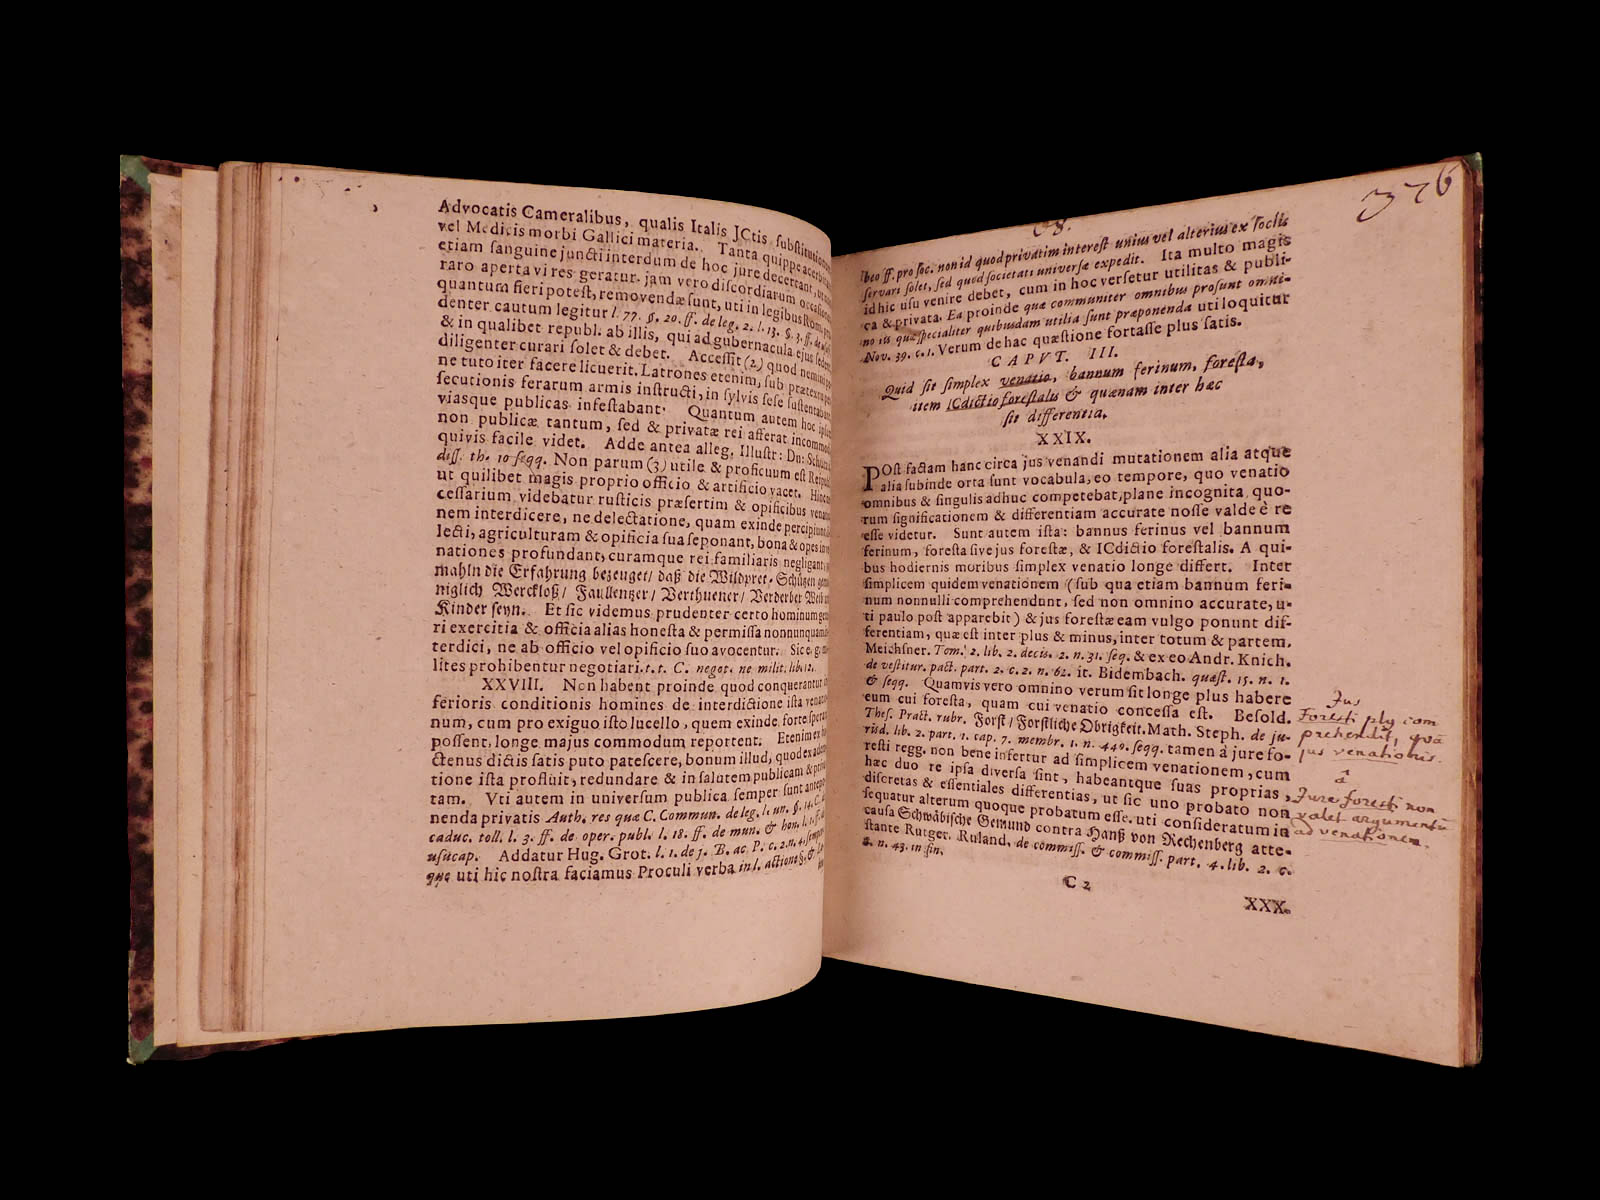 Advocatis Cameralibus, qualis Italis JCtis ſubſtitutionum
vel Medicis morbi Gallici materia. Tanta quippe acerbitate
etiam ſanguine juncti interdum de hoc jure decertant, ut non
raro aperta vi res geratur. jam vero diſcordiarum occaſiones
quantum fieri poteſt, removendæ ſunt, uti in legibus Rom. pru-
denter cautum legitur l. 77. §. 20. ff. de leg. 2. l. 13. §. 3. ff. de
& in qualibet republ. ab illis, qui ad gubernacula ejus ſedent,
diligenter curari ſolet & debet. Acceſſit (2) quod nemini pe-
ne tuto iter facere licuerit. Latrones etenim, ſub prætextu per-
ſecutionis ferarum armis inſtructi, in ſylvis ſeſe ſuſtentabant
viasque publicas infeſtabant. Quantum autem hoc ipſum
non publicæ tantum, ſed & privatæ rei afferat incommodi
quivis facile videt. Adde antea alleg. Illuſtr: Dn: Schum.
diſſ. th. 10 ſeqq. Non parum (3) utile & proficuum eſt Reipubl.
ut quilibet magis proprio officio & artificio vacet. Hinc
ceſſarium videbatur ruſticis præſertim & opificibus venatio-
nem interdicere, ne delectatione, quam exinde percipiunt,
lecti, agriculturam & opificia ſua ſeponant, bona & opes in ve-
nationes profundant, curamque rei familiaris negligant,
mahln die Erfahrung bezeuget/ daß die Wildpret-Schützen gemei-
niglich Werckloß/ Faullentzer/ Verthuener/ Verderber Weib und
Kinder ſeyn. Et ſic videmus prudenter certo hominum gene-
ri exercitia & officia alias honeſta & permiſſa nonnunquam in-
terdici, ne ab officio vel opificio ſuo avocentur. Sic e. g. mi-
lites prohibentur negotiari. t. t. C. negot. ne milit. lib. 12.
XXVIII. Non habent proinde quod conquerantur in-
ferioris conditionis homines de interdictione iſta venatio-
num, cum pro exiguo iſto lucello, quem exinde forte ſperare
poſſent, longe majus commodum reportent. Etenim ex ha-
ctenus dictis ſatis puto pateſcere, bonum illud, quod ex adem-
tione iſta profluit, redundare & in ſalutem publicam & priva-
tam. Vti autem in univerſum publica ſemper ſunt antepo-
nenda privatis Auth. res quæ C. Commun. de leg. l. un. §. 14. C. de
caduc. toll. l. 3. ff. de oper. publ. l. 18. ff. de mun. & hon. l. 1. ff. de
uſucap. Addatur Hug. Grot. l. 1. de j. B. ac P. c. 2. n. 4. ſemper-
que uti hic noſtra faciamus Proculi verba in l. actione §.
376
beo ff. pro ſoc. non id quod privatim intereſt unius vel alterius ex ſociis
ſervari ſolet, ſed quod ſocietati univerſæ expedit. Ita multo magis
id hic uſu venire debet, cum in hoc verſetur utilitas & publi-
ca & privata. Ea proinde quæ communiter omnibus proſunt omni-
no iis quæ ſpecialiter quibusdam utilia ſunt præponenda uti loquitur
Nov. 39. c. 1. Verum de hac quæſtione fortaſſe plus ſatis.
CAPVT. III.
Quid ſit ſimplex venatio, bannum ferinum, foreſta,
item ICdictio foreſtalis & quænam inter hæc
ſit differentia.
XXIX.
POſt factam hanc circa jus venandi mutationem alia atque
alia ſubinde orta ſunt vocabula, eo tempore, quo venatio
omnibus & ſingulis adhuc competebat, plane incognita, quo-
rum ſignificationem & differentiam accurate noſſe valde è re
eſſe videtur. Sunt autem iſta: bannus ferinus vel bannum
ferinum, foreſta ſive jus foreſtæ, & ICdictio foreſtalis. A qui-
bus hodiernis moribus ſimplex venatio longe differt. Inter
ſimplicem quidem venationem (ſub qua etiam bannum feri-
num nonnulli comprehendunt, ſed non omnino accurate, u-
ti paulo poſt apparebit) & jus foreſtæ eam vulgo ponunt dif-
ferentiam, quæ eſt inter plus & minus, inter totum & partem.
Meichſner. Tom. 2. lib. 2. decis. 2. n. 31. ſeq. & ex eo Andr. Knich.
de veſtitur. pact. part. 2. c. 2. n. 62. it. Bidembach. quæſt. 15. n. 1.
& ſeqq. Quamvis vero omnino verum ſit longe plus habere
eum cui foreſta, quam cui venatio conceſſa eſt. Beſold.
Theſ. Pract. rubr. Forſt/ Forſtliche Obrigkeit. Math. Steph. de ju-
risd. lib. 2. part. 1. cap. 7. membr. 1. n. 440. ſeqq. tamen à jure fo-
reſti regg. non bene infertur ad ſimplicem venationem, cum
hæc duo re ipſa diverſa ſint, habeantque ſuas proprias,
diſcretas & eſſentiales differentias, ut ſic uno probato non
ſequatur alterum quoque probatum eſſe. uti conſideratum in
cauſa Schwäbiſche Gemund contra Hanß von Rechenberg atte-
ſtante Rutger. Ruland. de commiſſ. & commiſſ. part. 4. lib. 2. c.
2. n. 43. in fin.
C 2
XXX.
Jus
Foresti plq com
prehendit, quā
jus venationis.
â
Jure foresti non
valet argumentū
ad venationem.